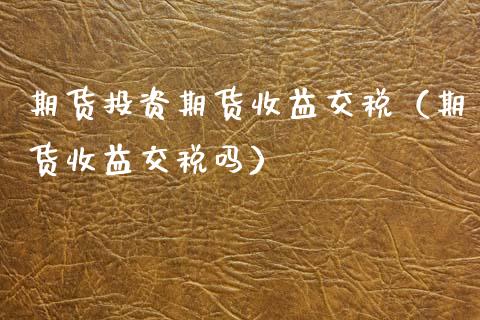 期货投资期货收益交税（期
货收益交税吗）